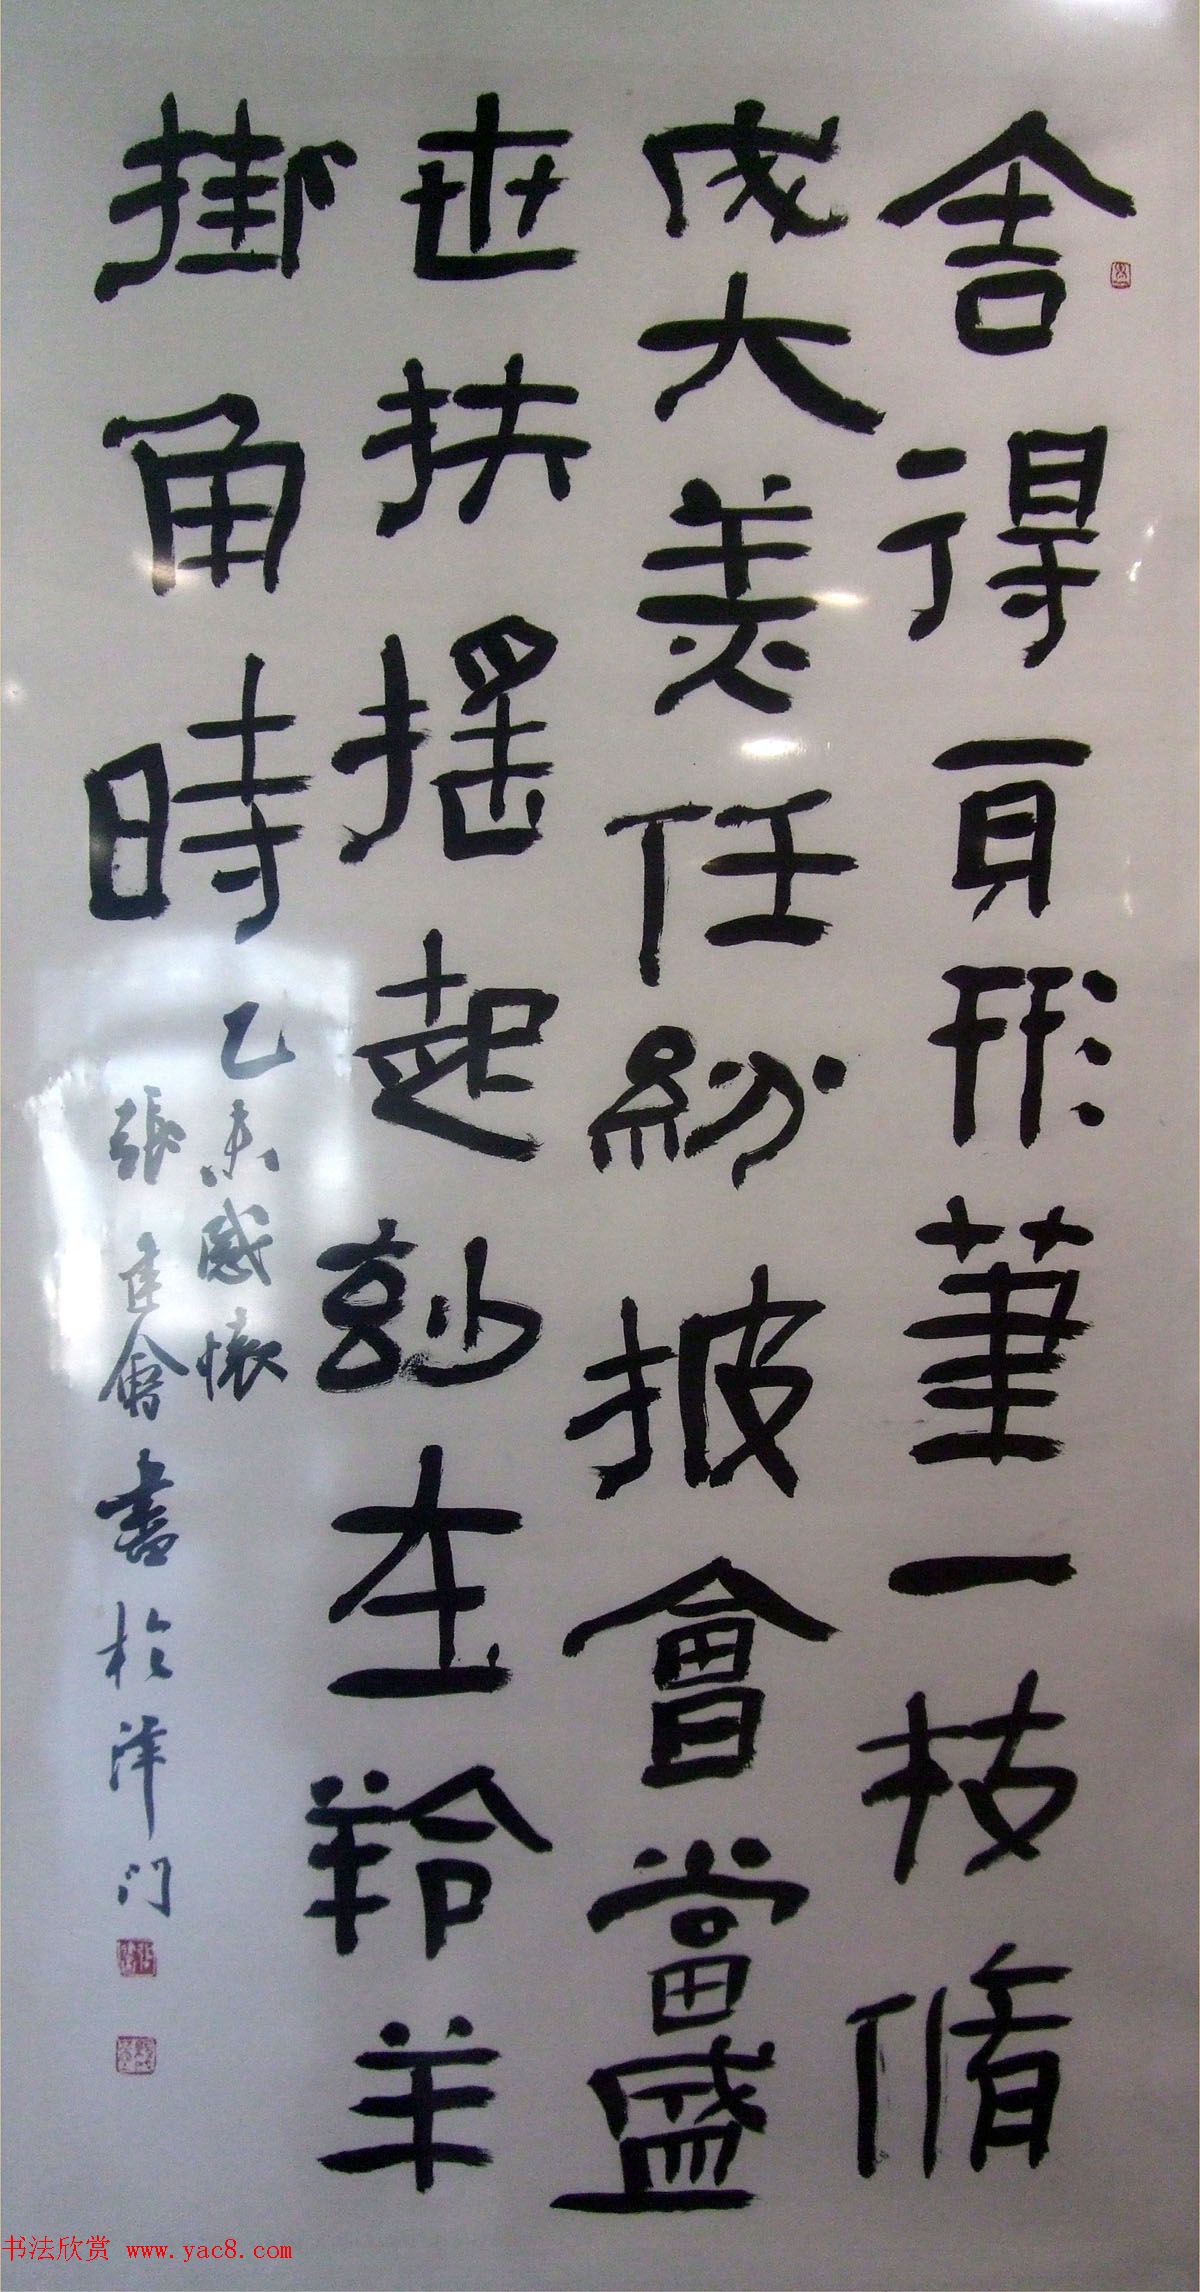 舍得百形筆一枝脩
成大美任紛披會當盛
世扶搖起妙在羚羊
掛角時
乙未感懷
張建會書於津门
书法欣赏 www.yac8.com